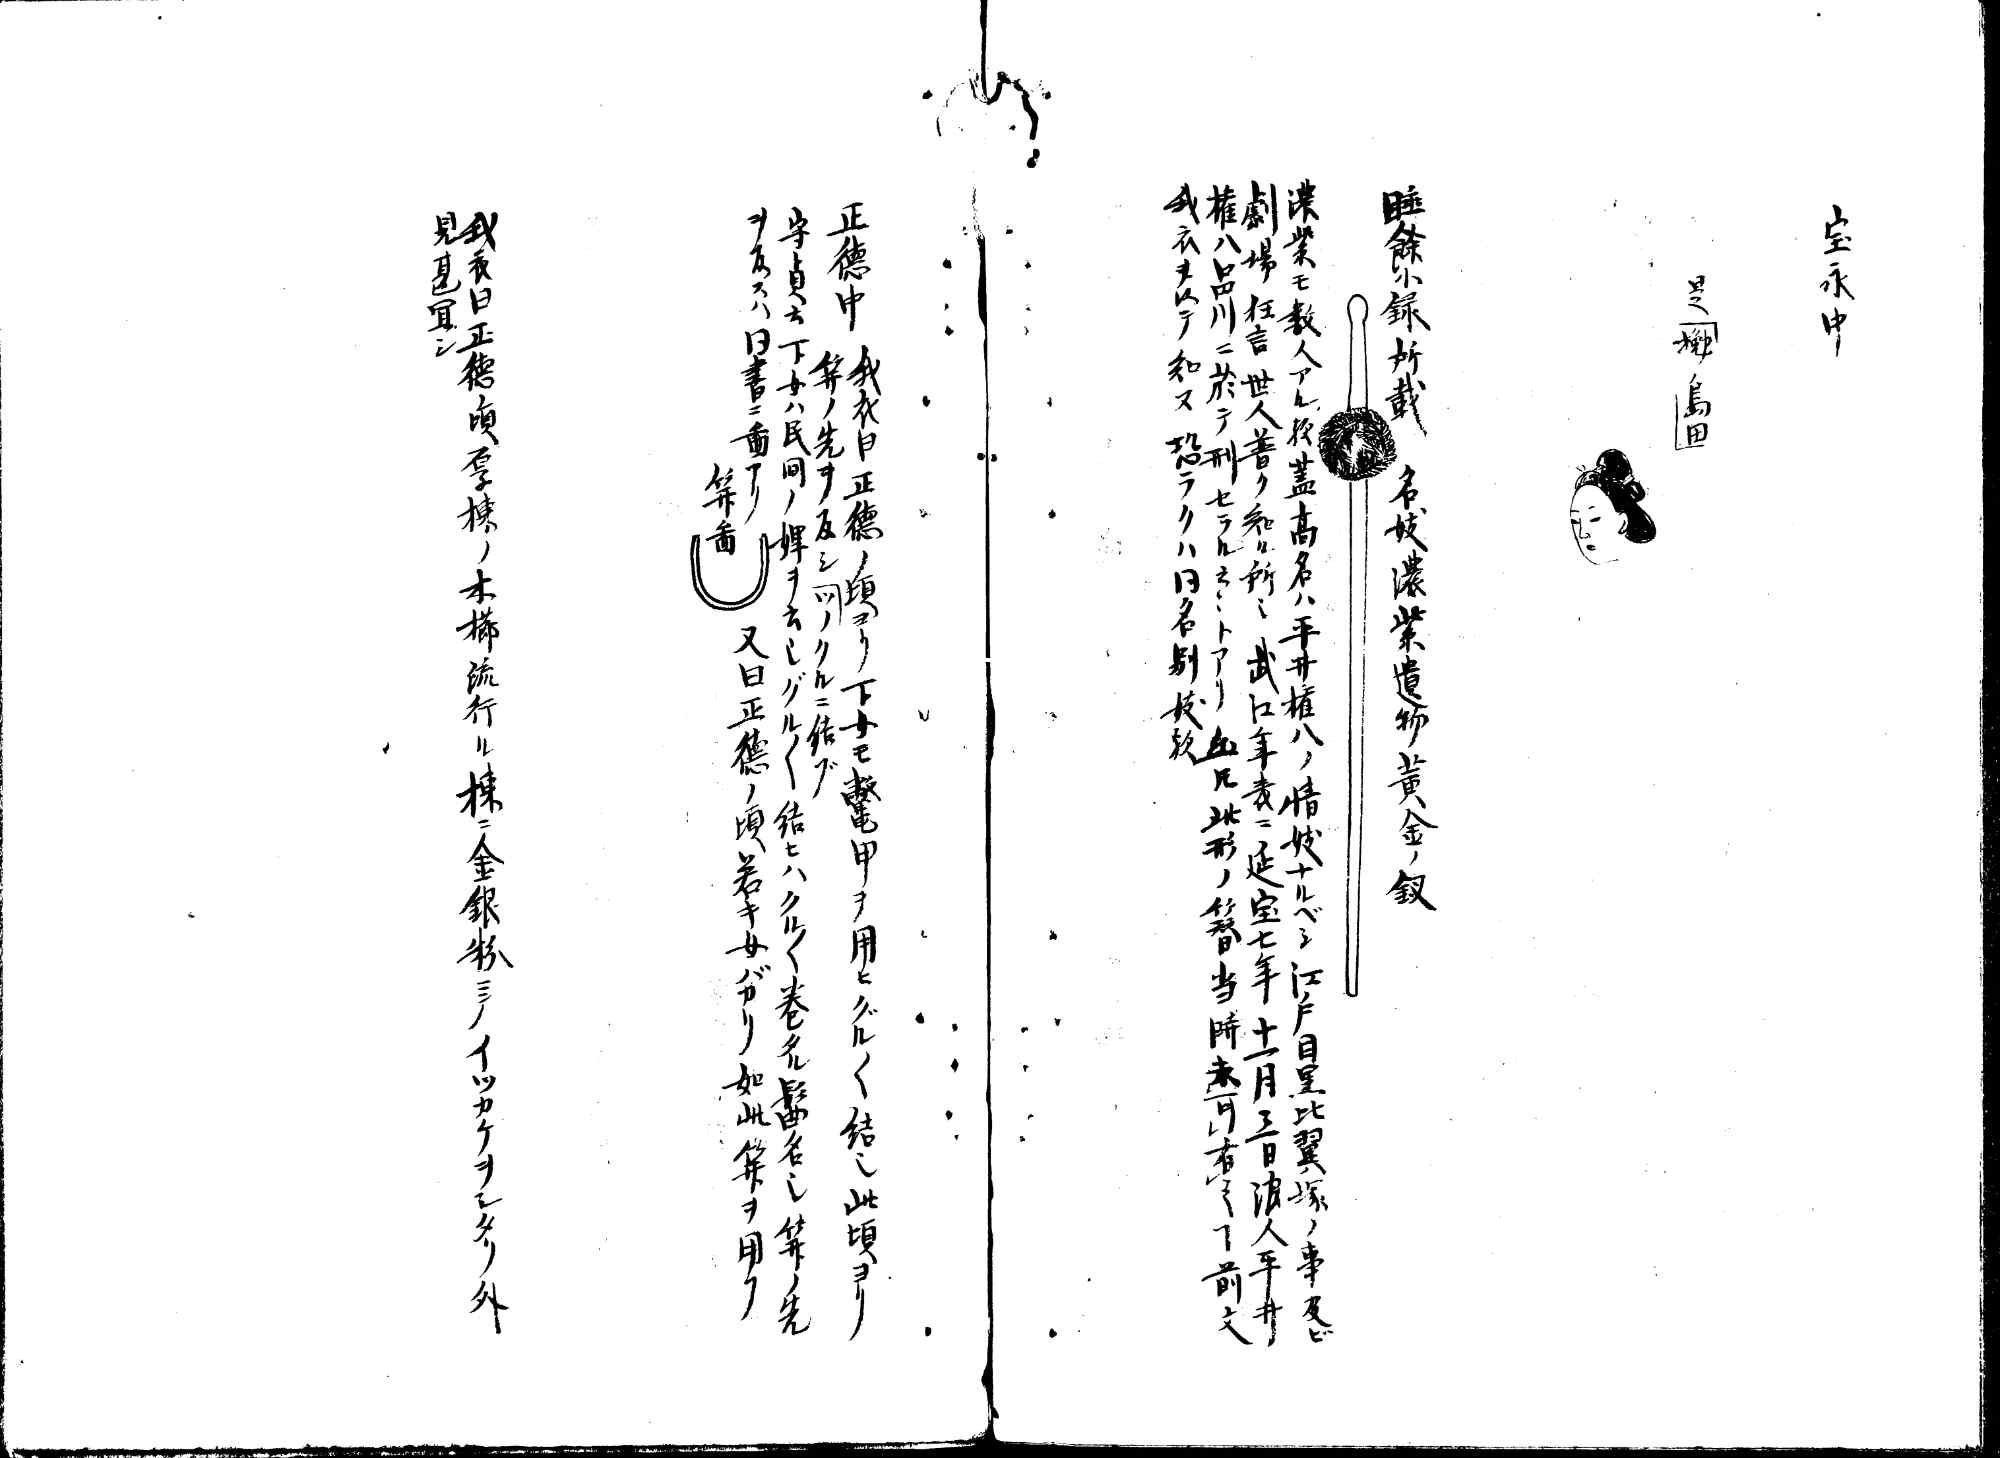 宝永中
是 島田
睡餘小録所載 名妓濃紫遺物黄金ノ釵
濃紫モ数人アル歟蓋高名ハ平井権八ノ情妓ナルベシ江戸目黒比翼塚ノ事及ビ
劇場狂言世人普ク知ル所ニ武江年表ニ延宝七年十一月三日浪人平井
権八品川ニ於テ刑セラル云々トアリ 此形ノ簪当時未前文
我衣ヲ以テ知ヌ恐ラクハ同名別妓歟
正徳中 我衣曰正徳ノ頃ヨリ下女モ鼈甲ヲ用ヒグル〱結シ此頃ヨリ
笄ノ先ヲ反シツノクルニ結ブ
守貞云下女ハ民間ノ婢ヲ云シグル〱結ヒハクル〱巻タル髷名シ笄ノ先
ヲ反スハ同書ニ圖アリ
笄圖
又曰正徳ノ頃若キ女バカリ如此笄ヲ用フ
我衣曰正徳頃厚棟ノ木櫛流行ル棟ニ金銀粉ミノイツカケヲシタリ外
見甚冝シ